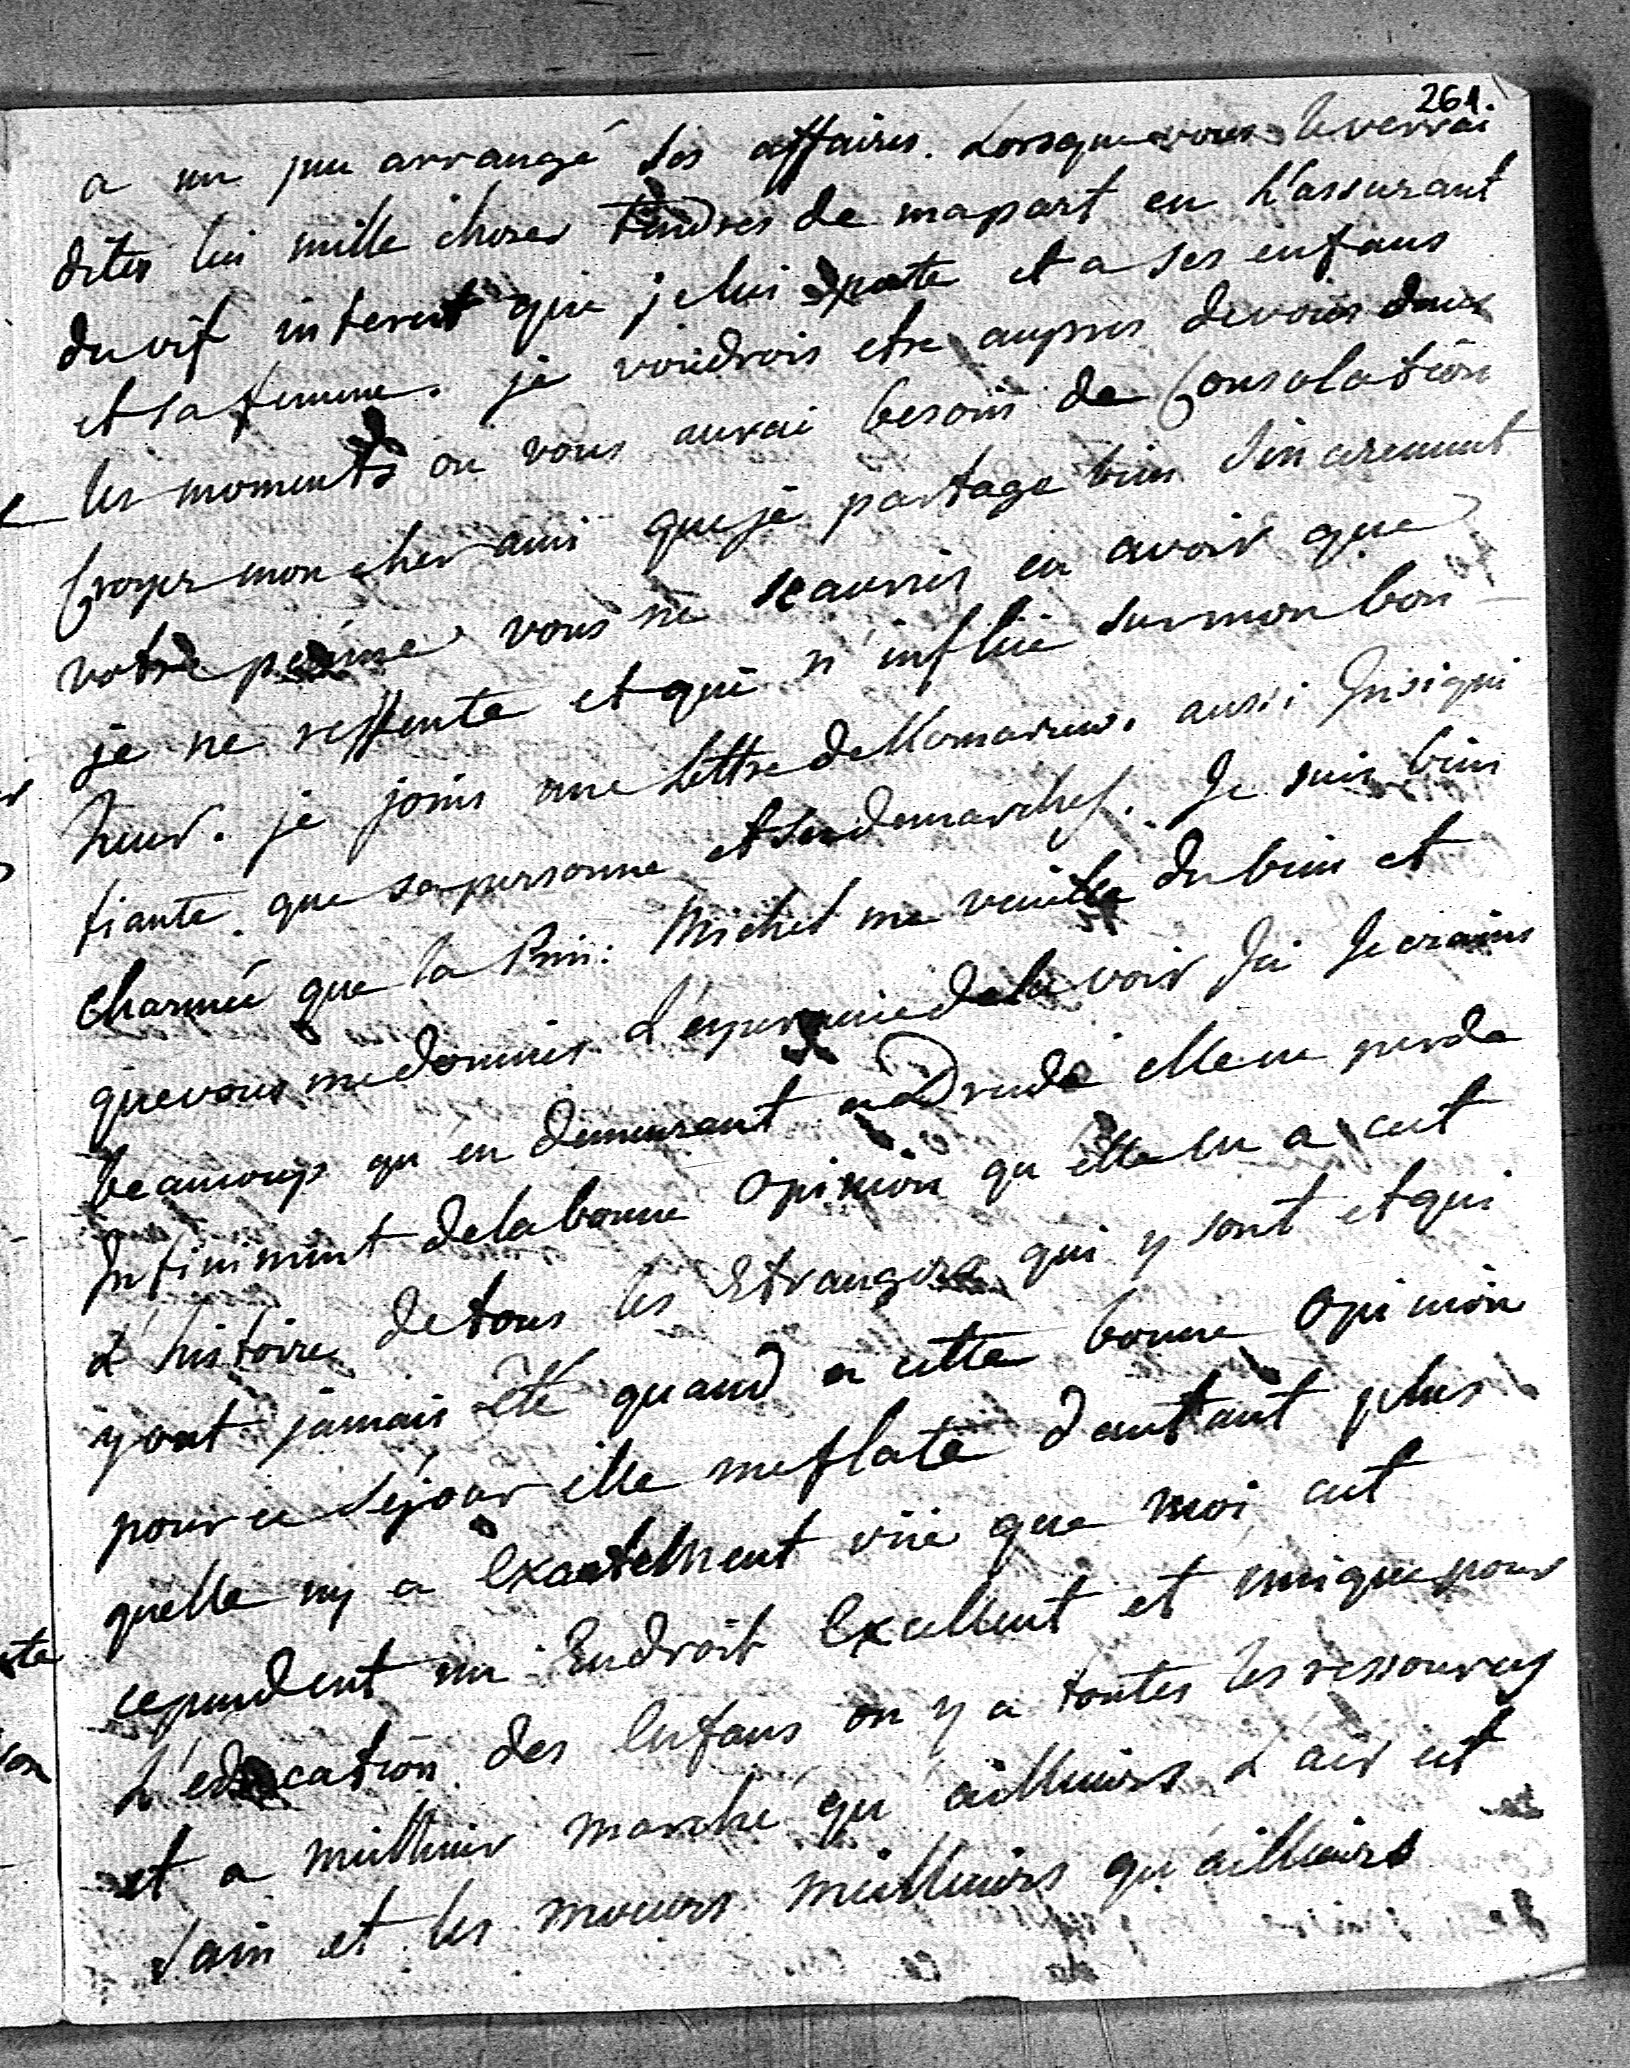 261.
a un peu arrangé ses affaires. Lorsque vous le verrai
dites lui mille choses tendres de mapart en L'assurant
du vif interest que je lui porte et a ses enfans
et sa femme. je voudrois etre aupres devous dans
les moments ou vous aurai besoin de Consolation
Croyes mon cher ami que je partage bien sincerement
votre peine vous ne scauries en avoir que
je ne ressente et qui n'influe sur mon bon
heur. je joins une Lettre de aussi Insigni
fiante que sa personne et ses demarches. Je suis bien
charmée que la Prin: Michel me veuille du bien et
que vous me donnies L'esperance dela voir Ici Je crains
beaucoup qu'en demeurant a elle ne perde
Infiniment dela bonne opinion qu'elle en a cest
L'histoire detous les Etrangers qui y sont et qui
y ont jamais été quand a cette bonne opinion
pour ce séjour elle me flate dautant plus
quelle ny a Exactement vüe que moi, cest
cependent un Endroit Excellent et unique pour
L'education des Enfans on y a toutes les ressources
et a meilleur marché qu'ailleurs L'air est
sain et les moeurs meilleurs qu'ailleurs